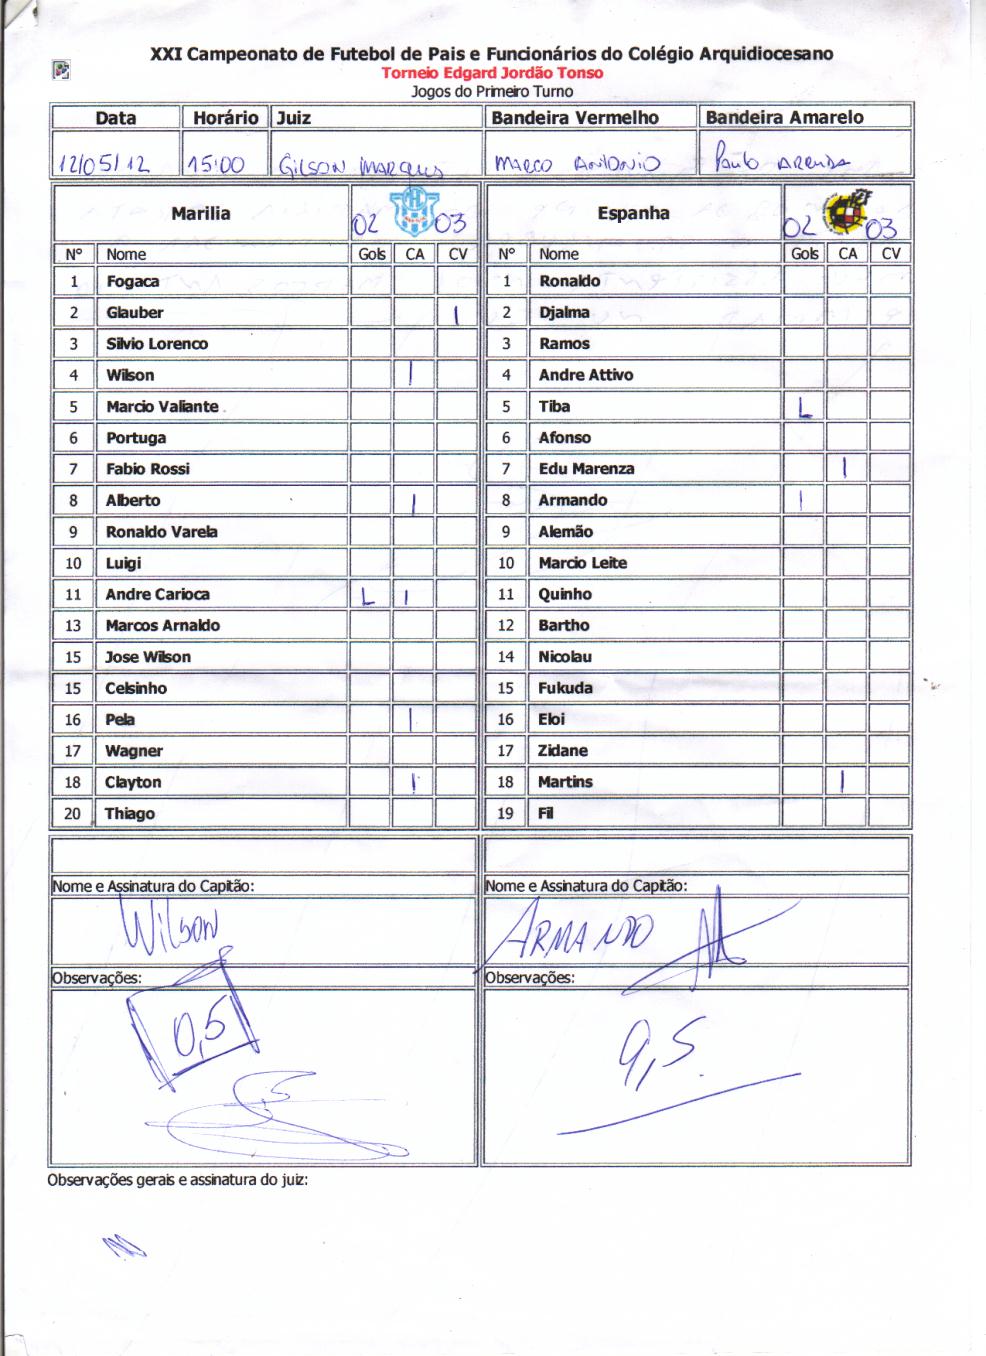 XXI Campeonato de Futebol de Pais e Funcionários do Colégio Arquidiocesano
Torneio Edgard Jordão Tonso
Jogos do Primeiro Turno
Data Horário Juiz Bandeira Vermelho Bandeira Amarelo
12/05/12 15:00 Gilson Marques Marco Antonio Paulo Arruda
Marilia 02 03 Espanha 02 03
Nº Nome Gols CA CV Nº Nome Gols CA CV
1 Fogaca 1 Ronaldo
2 Glauber | 2 Djalma
3 Silvio Lorenco 3 Ramos
4 Wilson | 4 Andre Attivo
5 Marcio Valiante 5 Tiba L
6 Portuga 6 Afonso
7 Fabio Rossi 7 Edu Marenza |
8 Alberto | 8 Armando |
9 Ronaldo Varela 9 Alemão
10 Luigi 10 Marcio Leite
11 Andre Carioca L | 11 Quinho
13 Marcos Arnaldo 12 Bartho
15 Jose Wilson 14 Nicolau
15 Celsinho 15 Fukuda
16 Pela | 16 Eloi
17 Wagner 17 Zidane
18 Clayton | 18 Martins |
20 Thiago 19 Fil
Nome e Assinatura do Capitão: Nome e Assinatura do Capitão:
Wilson ARMANDO
Observações: Observações:
0,5 9,5
Observações gerais e assinatura do juiz: